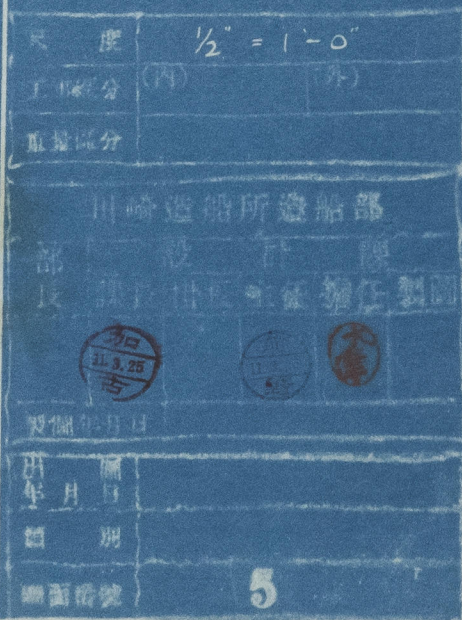 尺度 1/2" = 1'-0"
工事區分 (內) (外)
重量區分
川崎造船所造船部
部長 設計課
課長 掛長 主任 擔任 製圖
加 11.3.25 古
製圖年月日
出圖年月日
種別
圖面番號 5